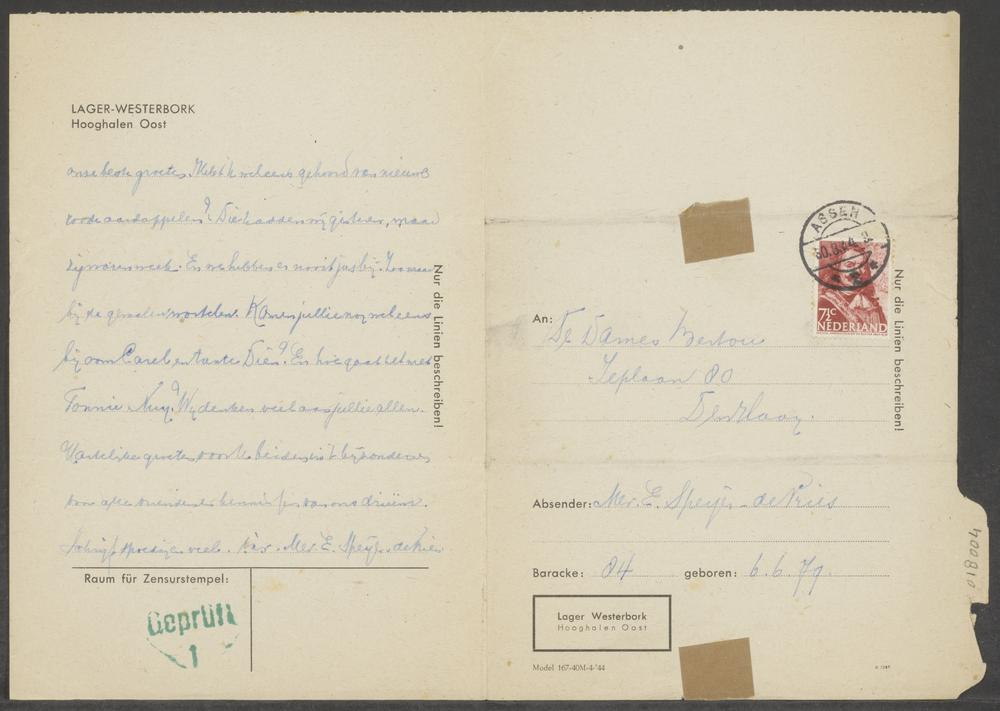 LAGER-WESTERBORK
Hooghalen Oost
onze beste groeten. Heb ik weleens gehoord van nieuwe
roode aardappelen? Die hadden wij gisteren, maar
zij waren week. En we hebben er nooit jus bij. Zoo maar
bij de gemalen wortelen. Komen jullie nog weleens
bij oom Carel en tante Dien? En hoe gaat het met
Tonnie Nuy? Wij denken veel aan jullie allen.
Hartelijke groeten voor U beiden in't bijzonder en
voor alle vrienden en kennissen van ons drieën.
Schrijf spoedig veel. Mev. E. Speijer-de Vries
Nur die Linien beschreiben!
Raum für Zensurstempel:
Geprüft
1
ASSEN
7½c
NEDERLAND
Nur die Linien beschreiben!
An: De Dames Bertou
Ieplaan 80
Den Haag.
Absender: Mev. E. Speijer-de Vries
Baracke: 84 geboren: 6.6.79.
Lager Westerbork
Hooghalen Oost
Model 167-40M-4-'44
018004